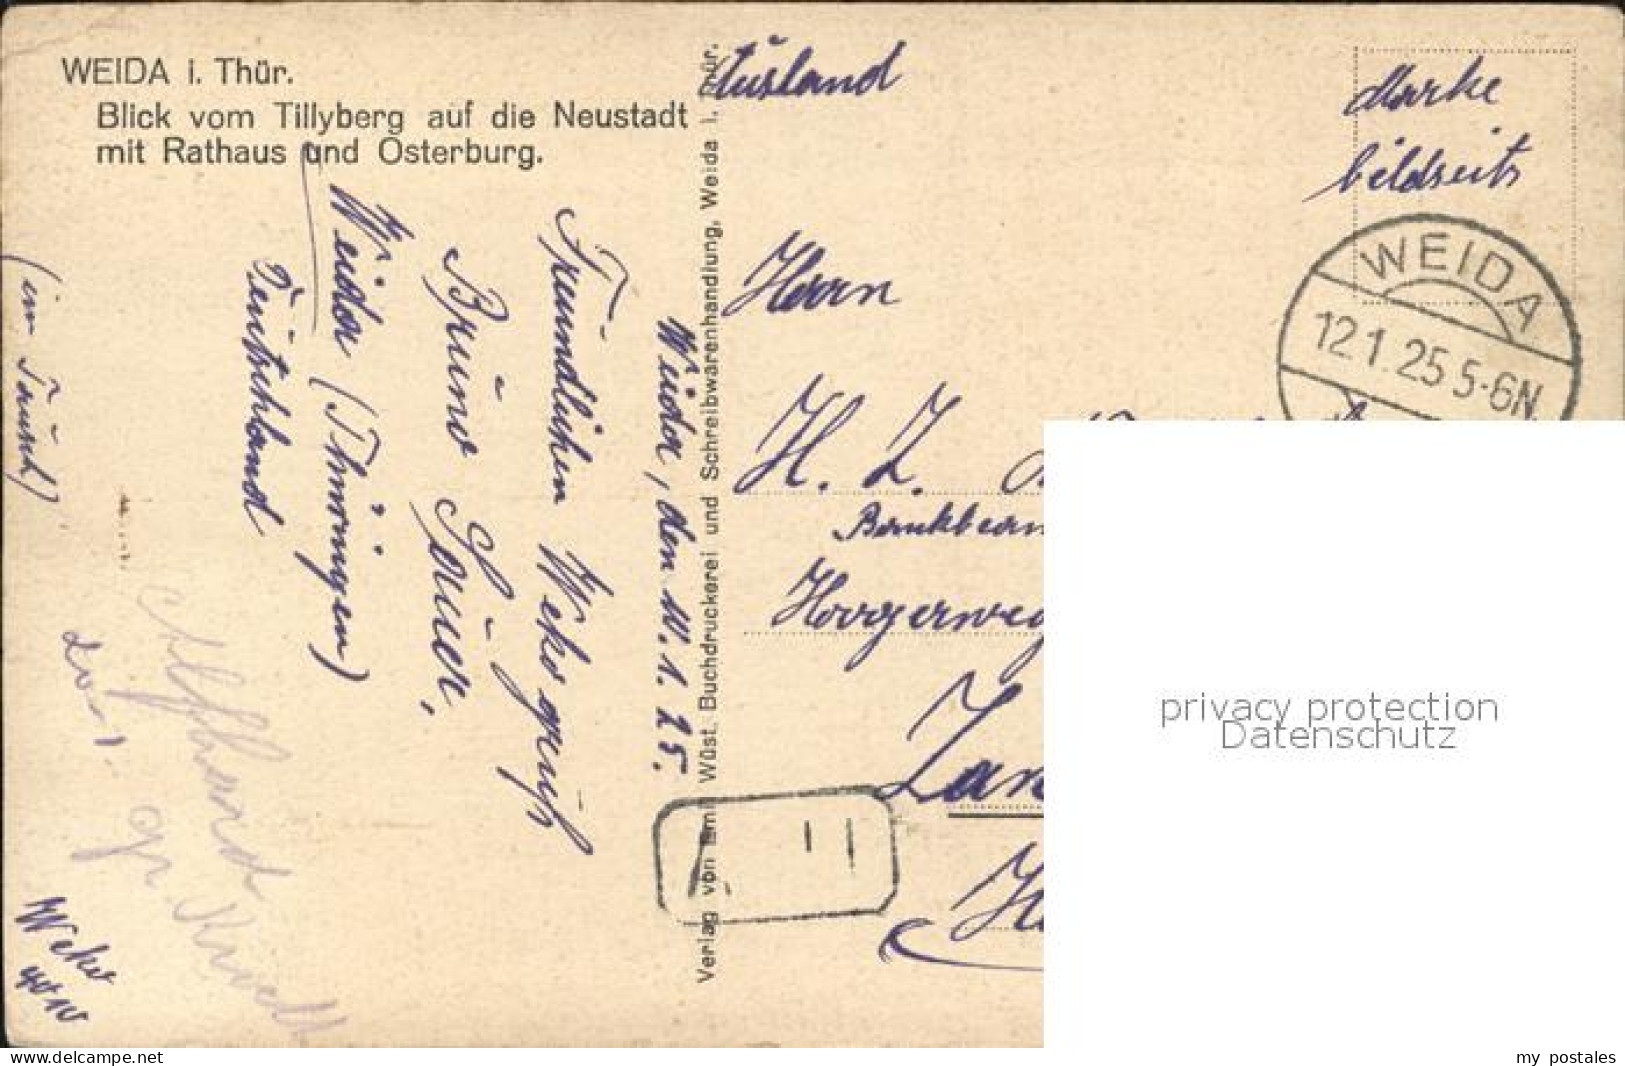 WEIDA i. Thür.
Blick vom Tillyberg auf die Neustadt
mit Rathaus und Osterburg.
Ausland
Marke
bildseits
WEIDA
12.1.25 5-6N
Herrn
H. Z.
Bankbeam
Hoogerweg
Zan
Weida, den 10.1.25.
Freundlichen Weko gruß
Bruno Sauer,
Weida (Thüringen)
Deutschland
(im Tausch)
Weko
Verlag von Emil Wüst. Buchdruckerei und Schreibwarenhandlung, Weida i. Thür.
privacy protection
Datenschutz
www.delcampe.net
my postales